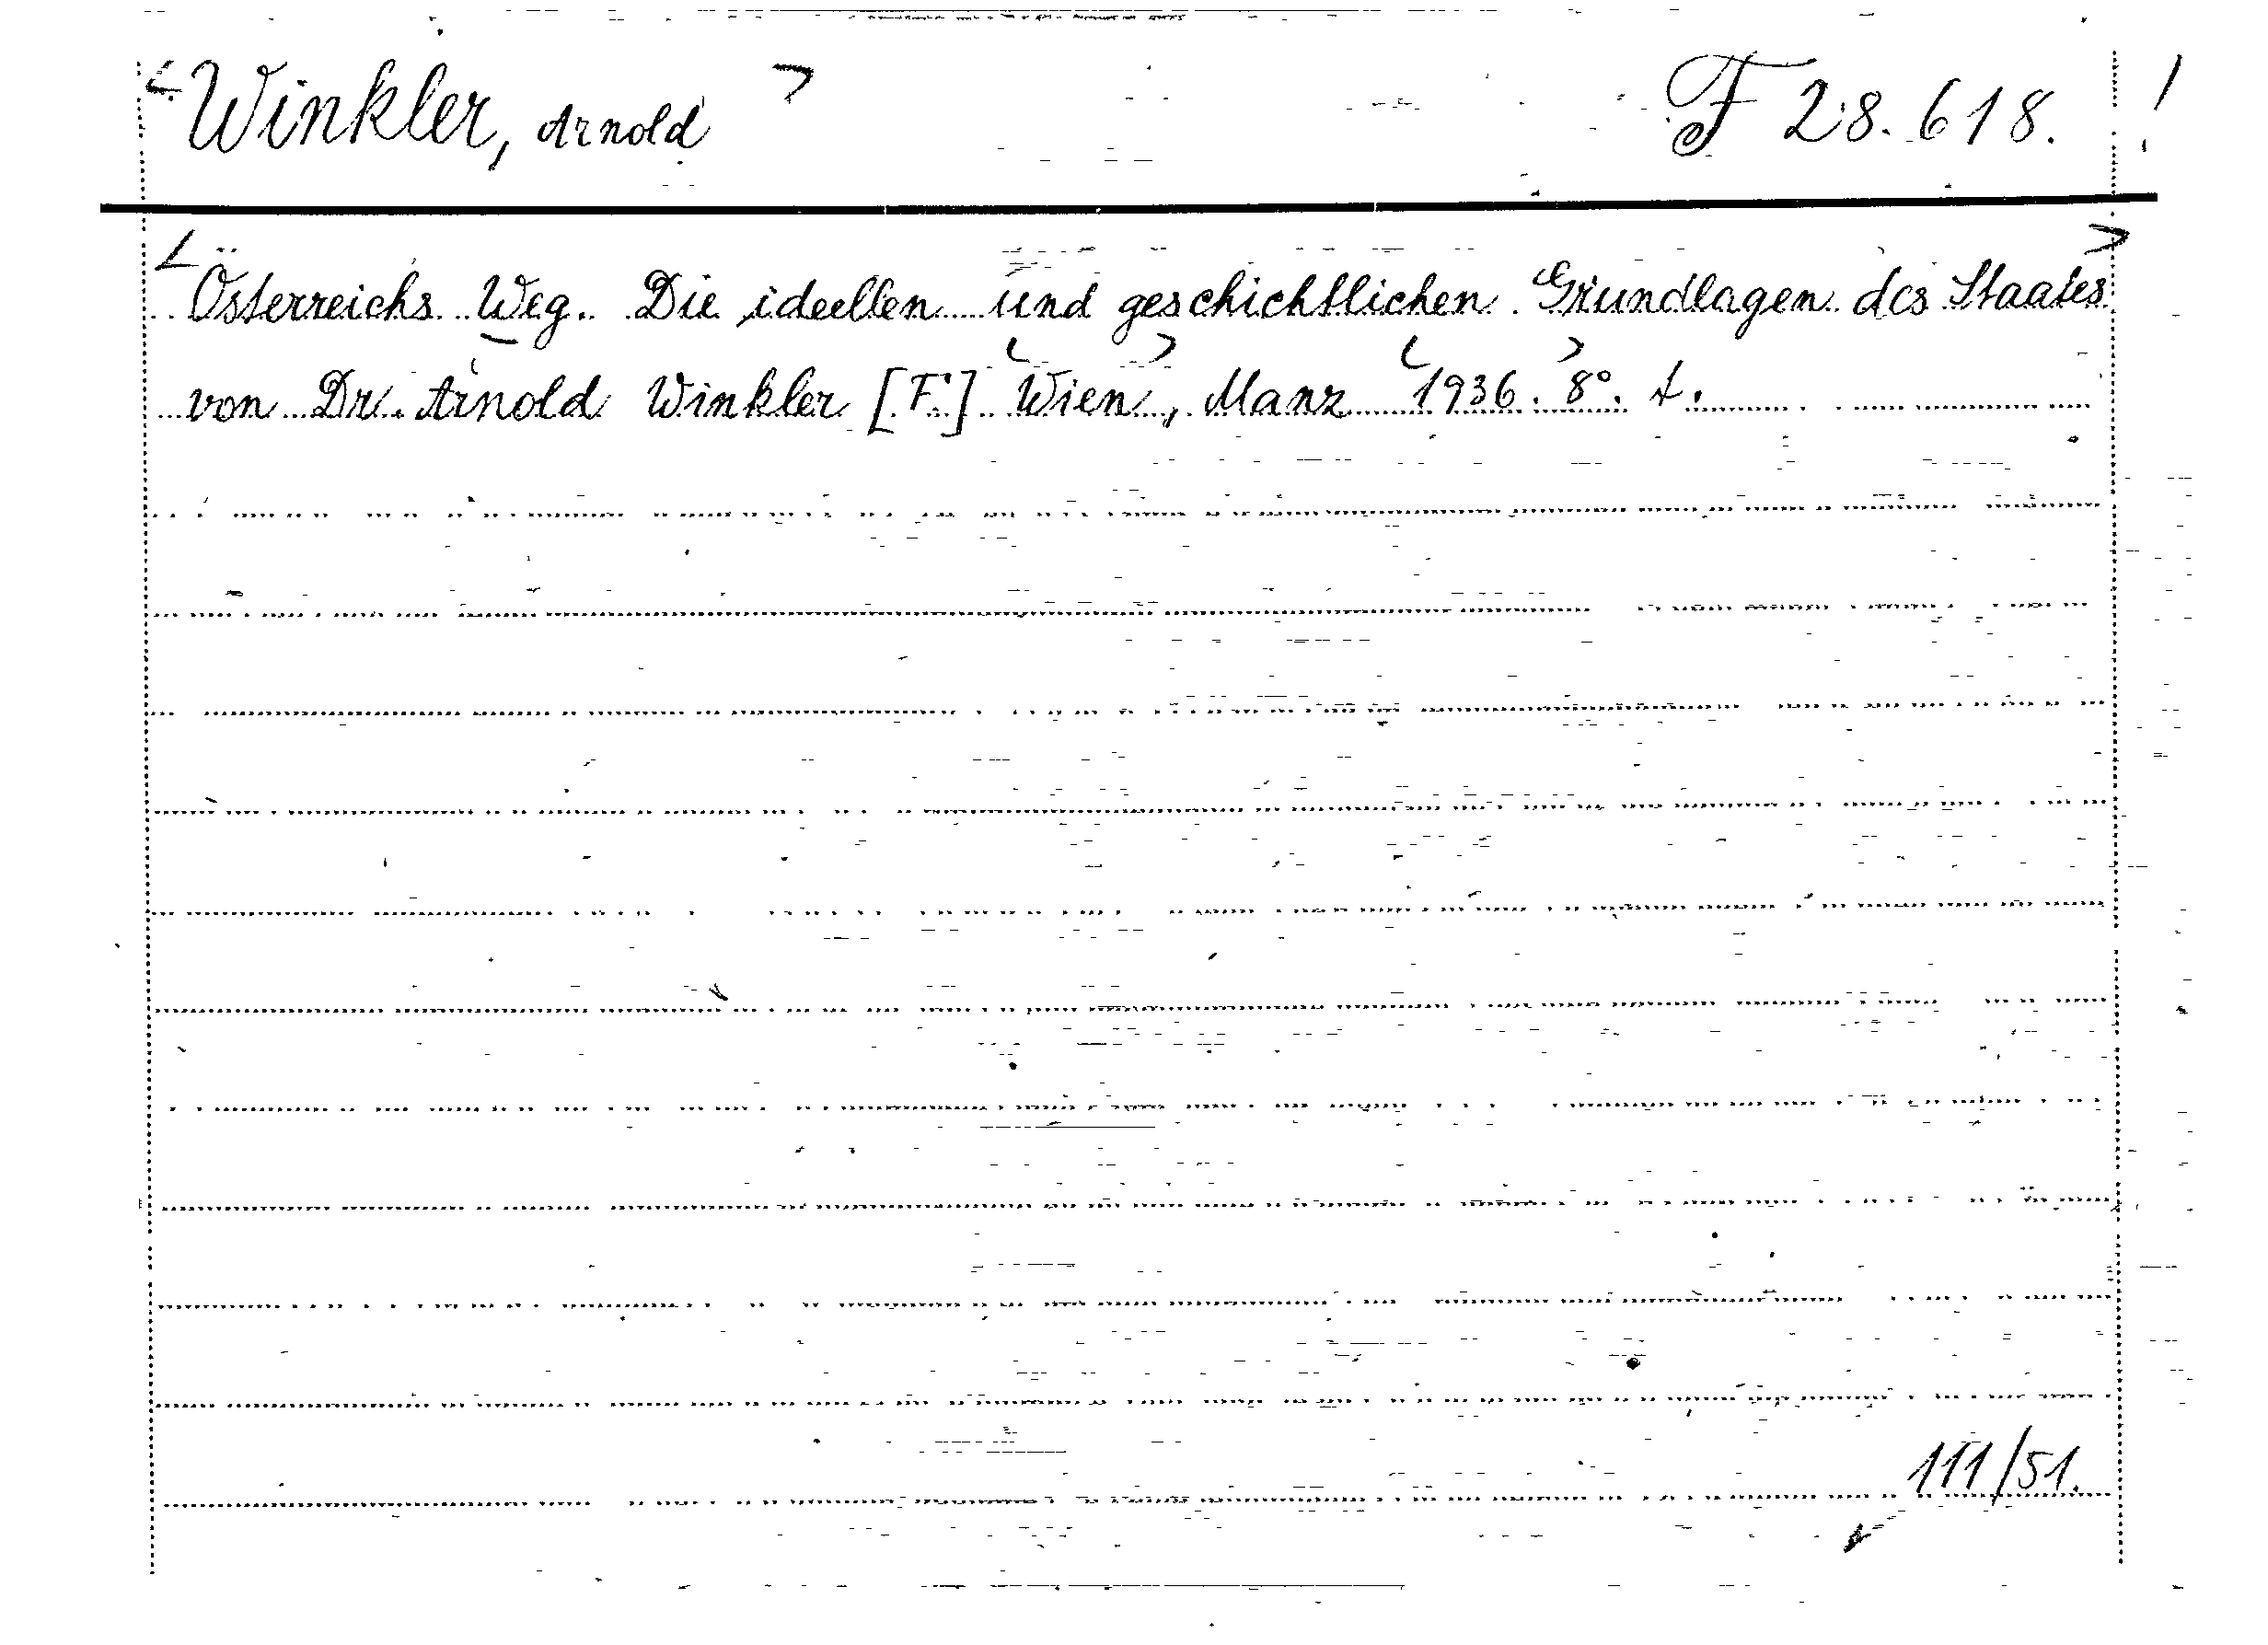 <Winkler, Arnold> F 28.618. !
<Österreichs Weg. Die ideellen und geschichtlichen Grundlagen des Staates>
von Dr. Arnold Winkler [F.] <Wien>, Manz <1936.> 8°.
111/51.